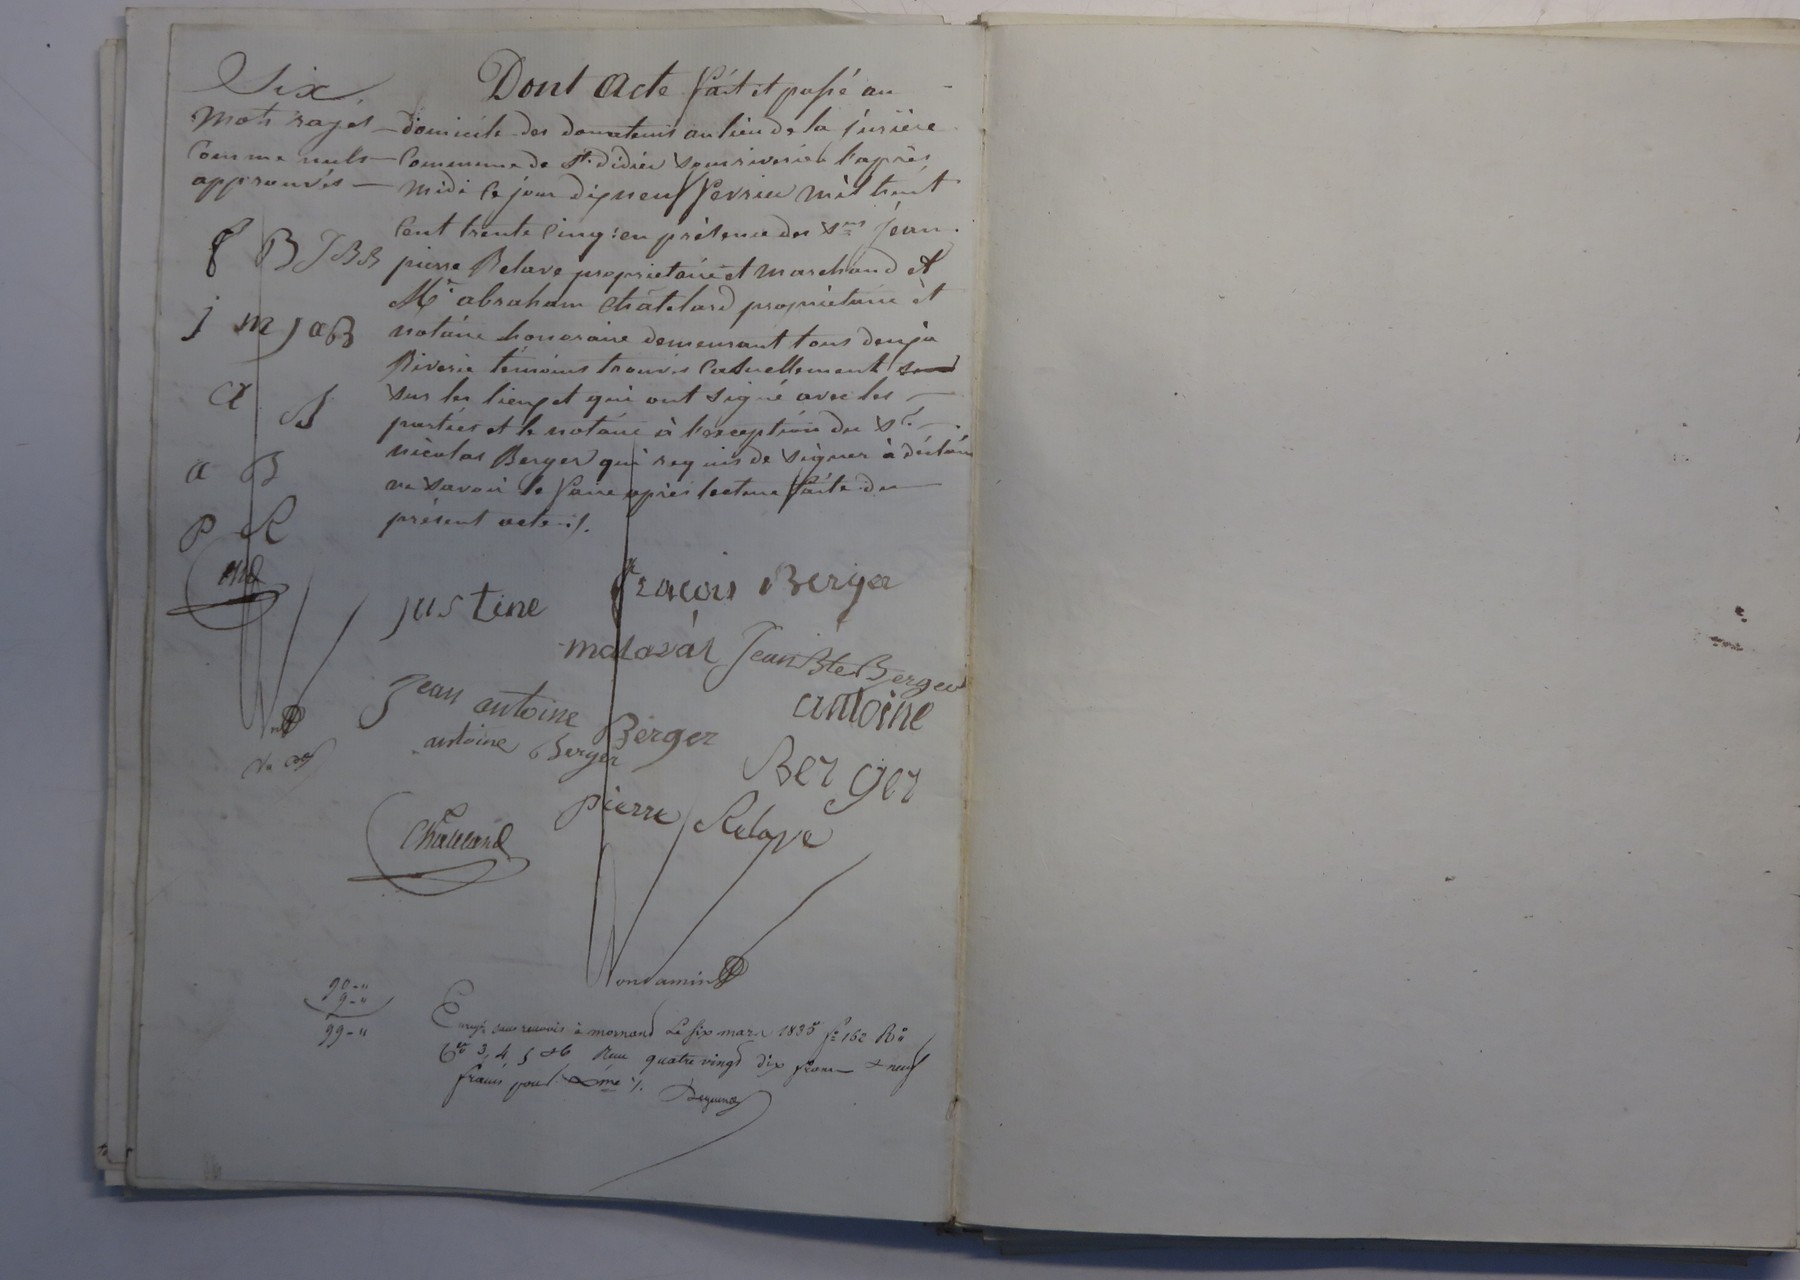 Six
mots rayés
comme nuls
approuvés
f B JBB
j m j a B
a J
a B
P R
Dont Acte fait et passé au
domicile des donateurs au lieu de la
commune de St. Didier sous riverie l'après
midi ce jour dix neuf fevrier mil huit
cent trente cinq : en présence des Srs jean
pierre Relave propriétaire et marchand et
Mr abraham Châtelard propriétaire et
notaire honoraire demeurant tous deux à
Riverie témoins trouvés casuellement
sur les lieux et qui ont signé avec les
parties et le notaire à l'exception du Sr.
nicolas Berger qui requis de signer à déclaré
ne savoir le faire après lecture faite du
présent acte ./.
justine fracois Berger
malaval Jean Bte Berger
Jean antoine Berger antoine
antoine Berger Berger
pierre Relave
Chatelard
90 - "
9 - "
99 - "
Enregt. sans renvois à mornand Le six mars 1835 fo 162 Ro
Ces 3, 4, 5 et 6 Reçu quatre vingt dix francs et neuf
francs pour Xme ./.